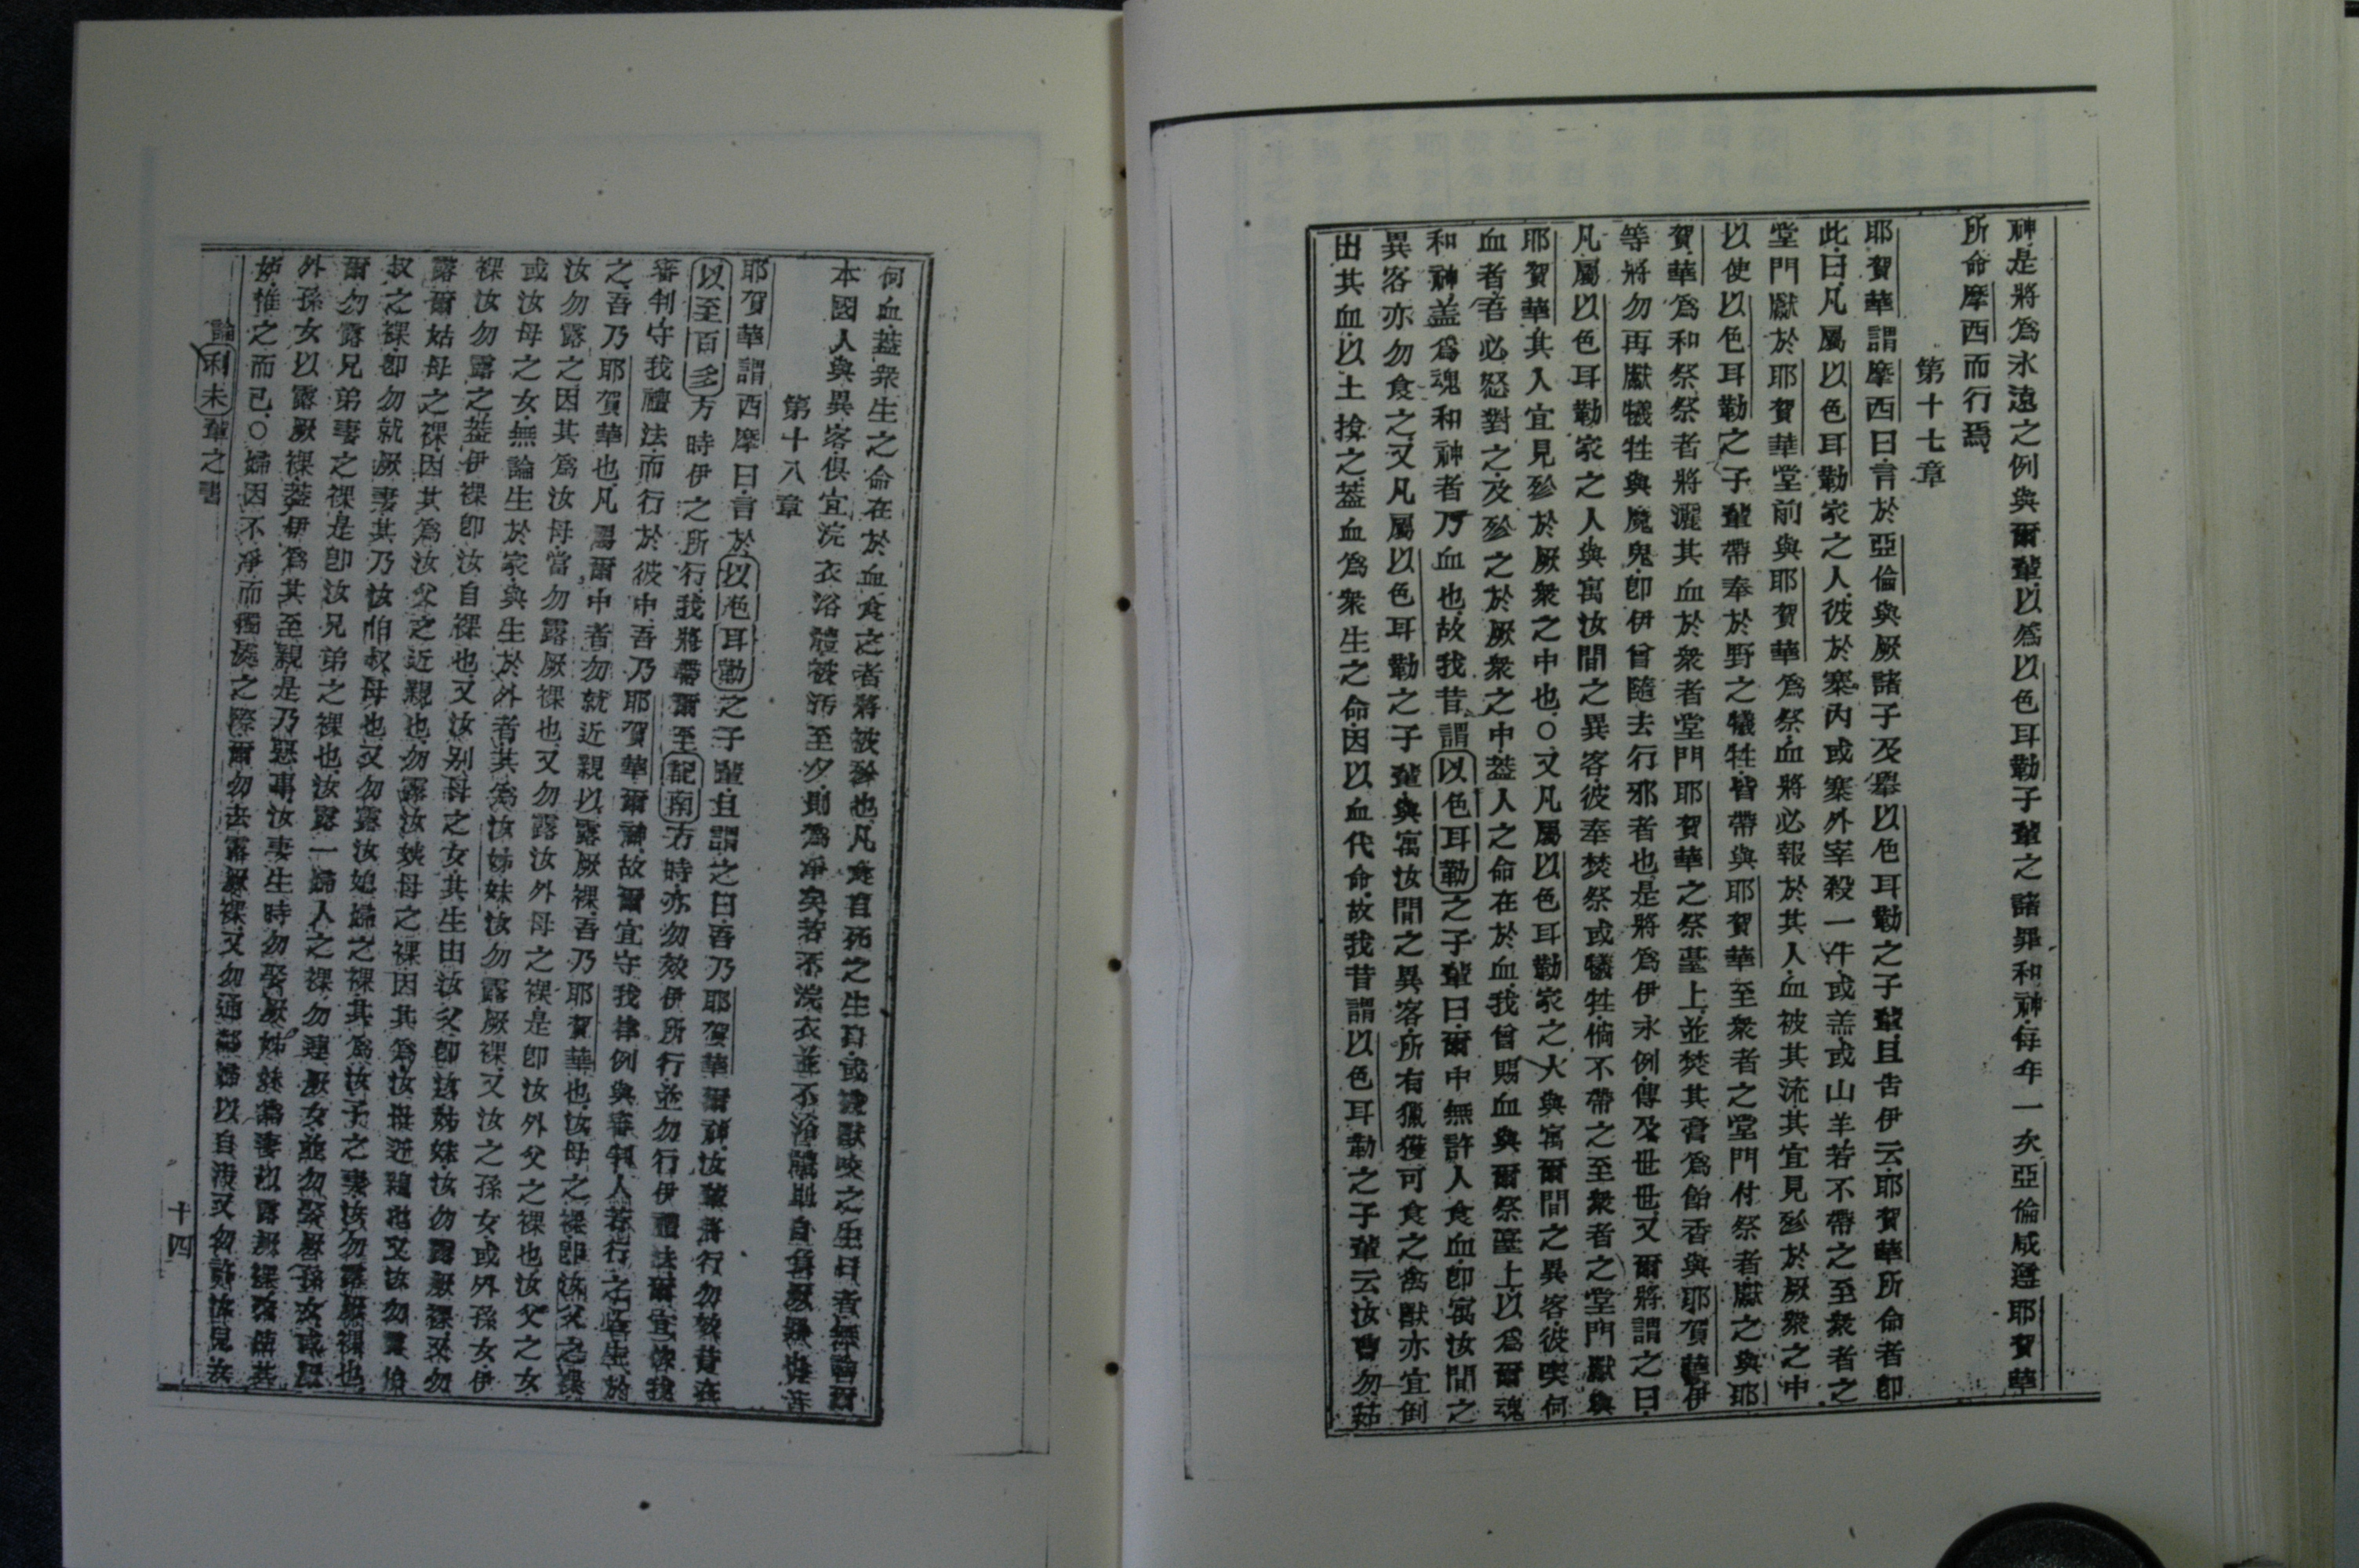 神是將爲永遠之例與爾輩以爲以色耳勒子輩之諸罪和神每年一次亞倫咸遵耶賀華
所命摩西而行焉
第十七章
耶賀華謂摩西曰言於亞倫與厥諸子及舉以色耳勒之子輩且告伊云耶賀華所命者卽
此曰凡屬以色耳勒家之人彼於寨內或寨外宰殺一牛或羔或山羊若不帶之至衆者之
堂門獻於耶賀華堂前與耶賀華爲祭血將必報於其人血被其流其宜見殄於厥衆之中
以使以色耳勒之子輩帶奉於野之犧牲皆帶與耶賀華至衆者之堂門付祭者獻之與耶
賀華爲和祭祭者將灑其血於衆者堂門耶賀華之祭臺上並焚其膏爲飴香與耶賀華伊
等將勿再獻犧牲與魔鬼卽伊曾隨去行邪者也是將爲伊永例傳及世世又爾將謂之曰
凡屬以色耳勒家之人與寓汝間之異客彼奉焚祭或犧牲倘不帶之至衆者之堂門獻與
耶賀華其人宜見殄於厥衆之中也○又凡屬以色耳勒家之人與寓爾間之異客彼喫何
血者吾必怒對之及殄之於厥衆之中蓋人之命在於血我曾賜血與爾祭臺上以爲爾魂
和神蓋爲魂和神者乃血也故我昔謂以色耳勒之子輩曰爾中無許人食血卽寓汝間之
異客亦勿食之又凡屬以色耳勒之子輩與寓汝間之異客所有獵獲可食之禽獸亦宜倒
出其血以土揜之蓋血爲衆生之命因以血代命故我昔謂以色耳勒之子輩云汝曹勿茹
何血蓋衆生之命在於血食之者將被殄也凡食自死之生口或被獸咬之生口者無論爾
本國人與異客俱宜浣衣浴體被污至夕則爲淨矣若不浣衣並不浴體則自負厥罪也
第十八章
耶賀華謂西摩曰言於以色耳勒之子輩且謂之曰吾乃耶賀華爾神汝輩將行勿效昔在
以至百多方時伊之所行我將帶爾至記南方時亦勿效伊所行並勿行伊禮法爾宜依我
審判守我禮法而行於彼中吾乃耶賀華爾神故爾宜守我律例與審判人若行之必生於
之吾乃耶賀華也凡屬爾中者勿就近親以露厥裸吾乃耶賀華也汝母之裸卽汝父之裸
汝勿露之因其爲汝母當勿露厥裸也又勿露汝外母之裸是卽汝外父之裸也汝父之女
或汝母之女無論生於家與生於外者其爲汝姊妹汝勿露厥裸又汝之孫女或外孫女伊
裸汝勿露之蓋伊裸卽汝自裸也又汝別母之女其生由汝父卽該姊妹汝勿露厥裸又勿
露爾姑母之裸因其爲汝父之近親也勿露汝姨母之裸因其爲汝母近親也又汝勿露伯
叔之裸卽勿就厥妻其乃汝伯叔母也又勿露汝媳婦之裸其爲汝子之妻汝勿露厥裸也
爾勿露兄弟妻之裸是卽汝兄弟之裸也汝露一婦人之裸勿連厥女並勿娶厥孫女或厥
外孫女以露厥裸蓋伊爲其至親是乃惡事汝妻生時勿娶厥姊妹爲妻以露厥裸 使其
妒惟之而已○婦因不淨而獨處之際爾勿去露厥裸又勿通鄰婦以自污又勿許汝兒女
論利未輩之書
十四